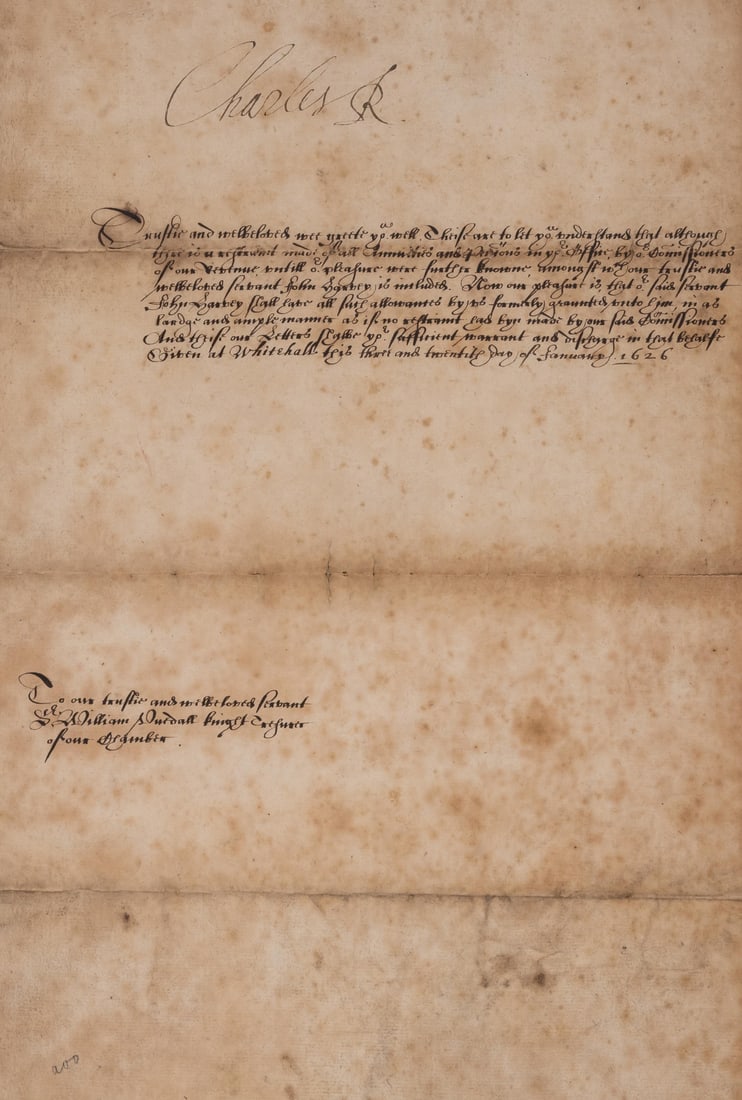 Charles R.
Trustie and welbeloved wee greete yow well. Theise are to let yow vnderstand that although
there is a restraint made of all Annuities and Pencions in yor Office, by or Comissioners
of our Revenue vntill or pleasure were further knowne, amongst wch our trustie and
welbeloved servant John Harvey is included. Now our pleasure is, that or said servant
John Harvey shall have all such allowances by vs formerly graunted vnto him, in as
lardge and ample manner as if no restraint had byn made by our said Comissioners
And theise our Letters shalbe yor sufficient warrant and discharge in that behalfe
Given at Whitehall this three and twentith day of January. 1626
To our trustie and welbeloved servant
Sr William Vuedall knight Tresurer
of our Chamber.